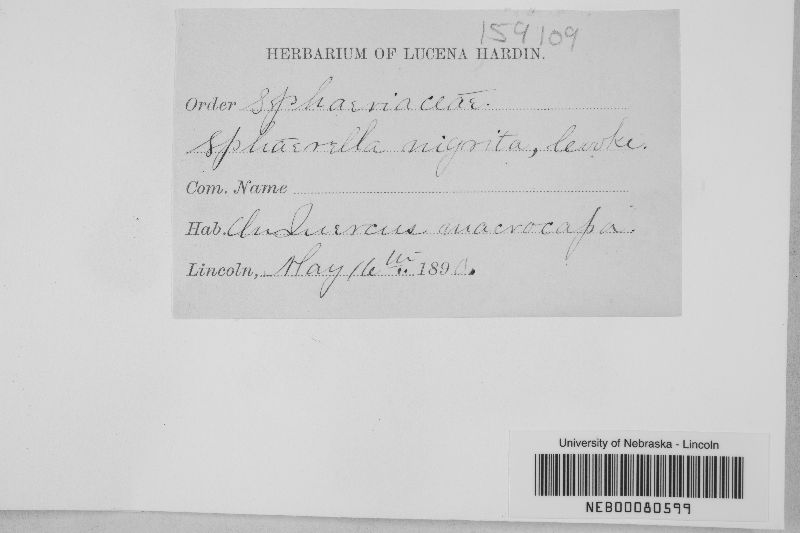 159109
HERBARIUM OF LUCENA HARDIN.
Order Sphaeriaceae.
Sphaerella nigrita, Cooke.
Com. Name
Hab. On Quercus macrocapa.
Lincoln, May 16th 1890.
University of Nebraska - Lincoln
NEB00080599